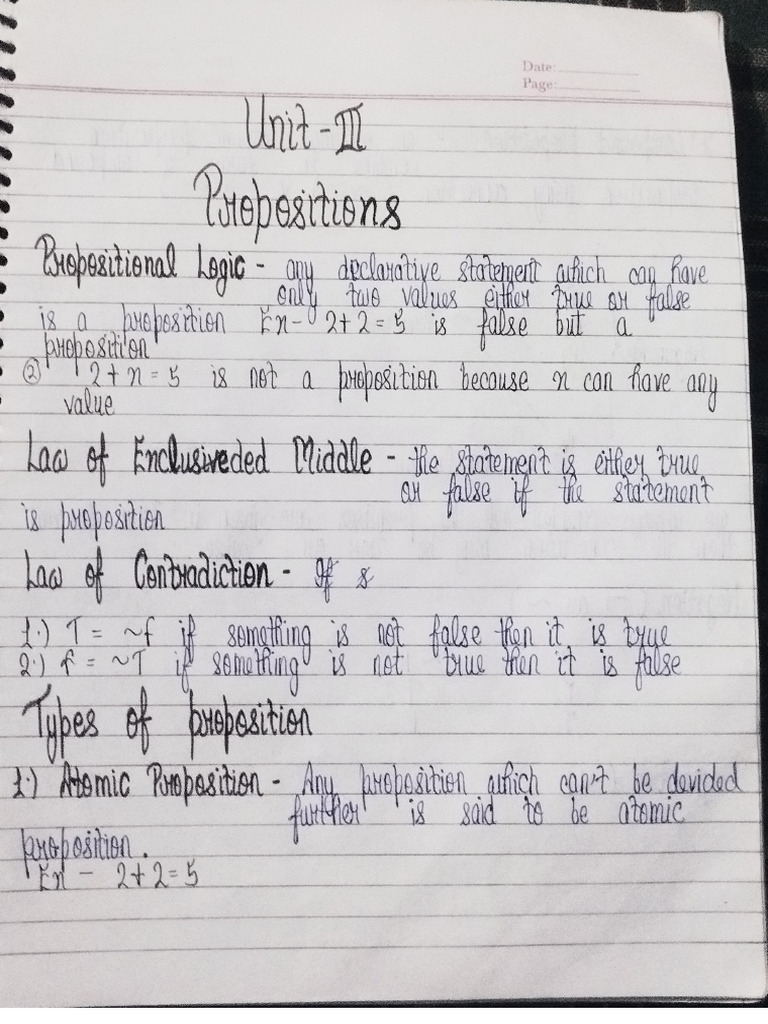 Date:
Page:
Unit - III
Propositions
Propositional Logic - any declarative statement which can have
only two values either true or false
is a proposition Ex- 2+2=5 is false but a
proposition
② 2+x=5 is not a proposition because x can have any
value
Law of Enclusiveded Middle - the statement is either true
or false if the statement
is proposition
Law of Contradiction - If
1.) T = ~f if something is not false then it is true
2.) f = ~T if something is not true then it is false
Types of proposition
1.) Atomic Proposition - Any proposition which can't be devided
further is said to be atomic
proposition.
Ex - 2+2=5